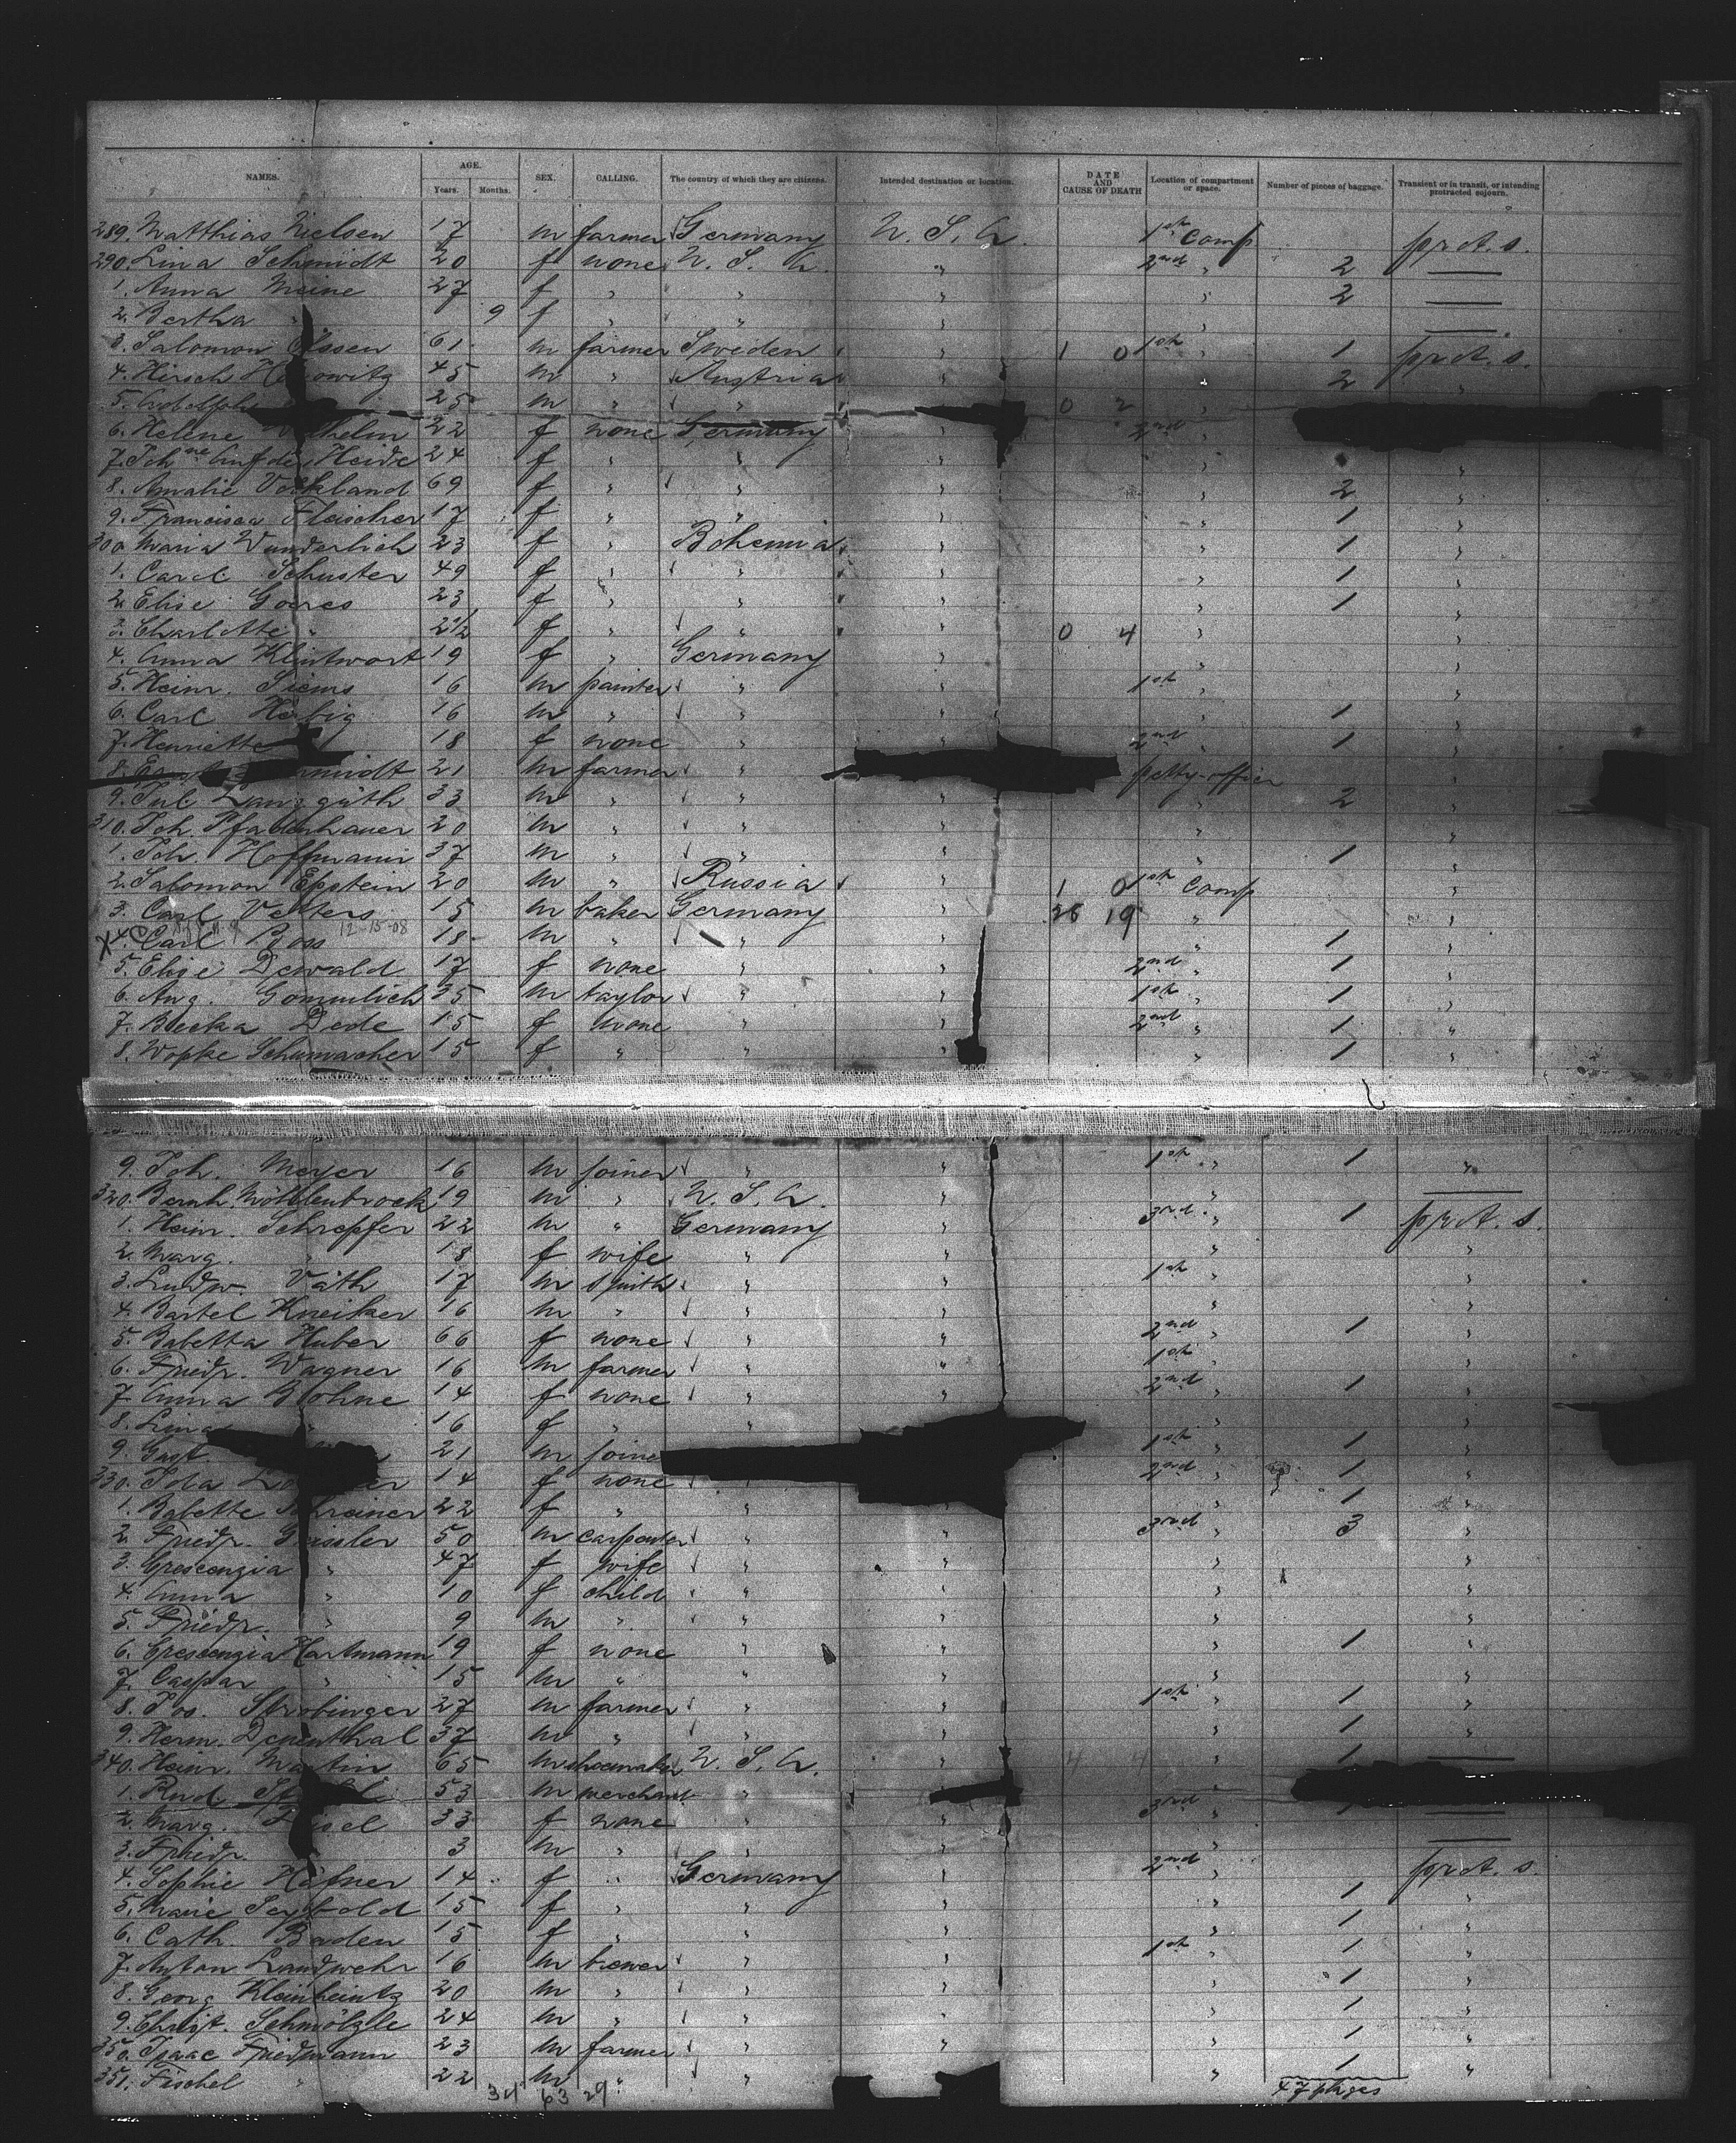 NAMES. AGE. Years. Months. SEX. CALLING. The country of which they are citizens. Intended destination or location. DATE AND CAUSE OF DEATH Location of compartment or space. Number of pieces of baggage. Transient or in transit, or intending protracted sojourn.
289. Matthias Nielsen 17 m farmer Germany U. S. A. 1st Comp prot. s.
290. Lina Schmidt 20 f none U. S. A. " 2nd " 2 —
1. Anna Meine 27 f " " " " 2 —
2. Bertha " 9 f " " " " —
3. Salomon 61 m farmer Sweden " 1 0 1st " 1 prot. s.
4. Hirsch 45 m " Austria " " 2 "
5. Adolph 25 m " " 0 2 "
6. Helene 22 f none Germany " 2nd "
7. Joh.ne Aufder Heide 24 f " " " " "
8. Amalie Volkland 69 f " " " " 2 "
9. Francisca Fleischer 17 f " " " " 1 "
300. Maria Wunderlich 23 f " Bohemia " " 1 "
1. Carol Schuster 49 f " " " " 1 "
2. Elise Goeres 23 f " " " " 1 "
3. Charlotte " 2 1/2 f " " " 0 4 " "
4. Anna Klintwort 19 f " Germany " " "
5. Heinr. Siems 16 m painter " " 1st " "
6. Carl Herbig 16 m " " " 1 "
7. Henriette 18 f none " 2nd " 1 "
8. 21 m farmer " petty-officer
9. Jul. Langguth 33 m " " " " 2 "
310. Joh. Pfadenhauer 20 m " " " " "
1. Joh. Hoffmann 37 m " " " " 1 "
2. Salomon Epstein 20 m " Russia " 1 0 1st Comp "
3. Carl Vetters 15 m baker Germany " 26 19 " "
X 4. Carl Boss 12-15-08 18 m " " " " 1 "
5. Elise Dewald 17 f none " " 2nd " 1 "
6. Aug. Gommlich 35 m taylor " " 1st " 1 "
7. Becka Dede 15 f none " " 2nd " 1 "
8. Wopke Schumacher 15 f " " " " 1 "
9. Joh. Meyer 16 m joiner " " 1st " 1 "
320. Bernh. Möhlenbrock 19 m " U. S. A. " " —
1. Heinr. Schrepfer 22 m " Germany " 3rd " 1 prot. s.
2. Marg. " 18 f wife " " " "
3. Ludw. Väth 17 m smith " " 1st " "
4. Bartel Kneiker 16 m " " " " "
5. Babetta Huber 66 f none " " 2nd " 1 "
6. Friedr. Wagner 16 m farmer " " 1st " "
7. Anna Bohne 14 f none " " 2nd " 1 "
8. Lina " 16 f " " " "
9. Gust. 21 m joiner 1st " 1 "
330. Ida 14 f none " 2nd " 1 "
1. Babette Schreiner 22 f " " " " 1 "
2. Friedr. Geissler 50 m carpenter " " 3rd " 3 "
3. Crescenzia " 47 f wife " " " "
4. Anna " 10 f child " " " "
5. Friedr. " 9 m " " " " "
6. Crescenzia Hartmann 19 f none " " " 1 "
7. Caspar " 15 m " " " " "
8. Jos. Strobinger 27 m farmer " " 1st " 1 "
9. Herm. Depenthal 37 m " " " " 1 "
340. Heinr. Martin 65 m shoemaker U. S. A. " 4 4 " 1 —
1. Rud. 53 m merchant " "
2. Marg. 33 f none " " 3rd " —
3. Friedr. 3 m " " " " —
4. Sophie Häfner 14 f " Germany " 2nd " prot. s.
5. Marie Seybold 15 f " " " " 1 "
6. Cath. Baden 15 f " " " " 1 "
7. Anton Landwehr 16 m brewer " " 1st " 1 "
8. Georg Kleinheintz 20 m " " " " 1 "
9. Christ. Schmölzle 24 m " " " " 1 "
350. Isaac Friedmann 23 m farmer " " " 1 "
351. Fischel " 22 m " " " 1 "
34 63 29 47 pkges